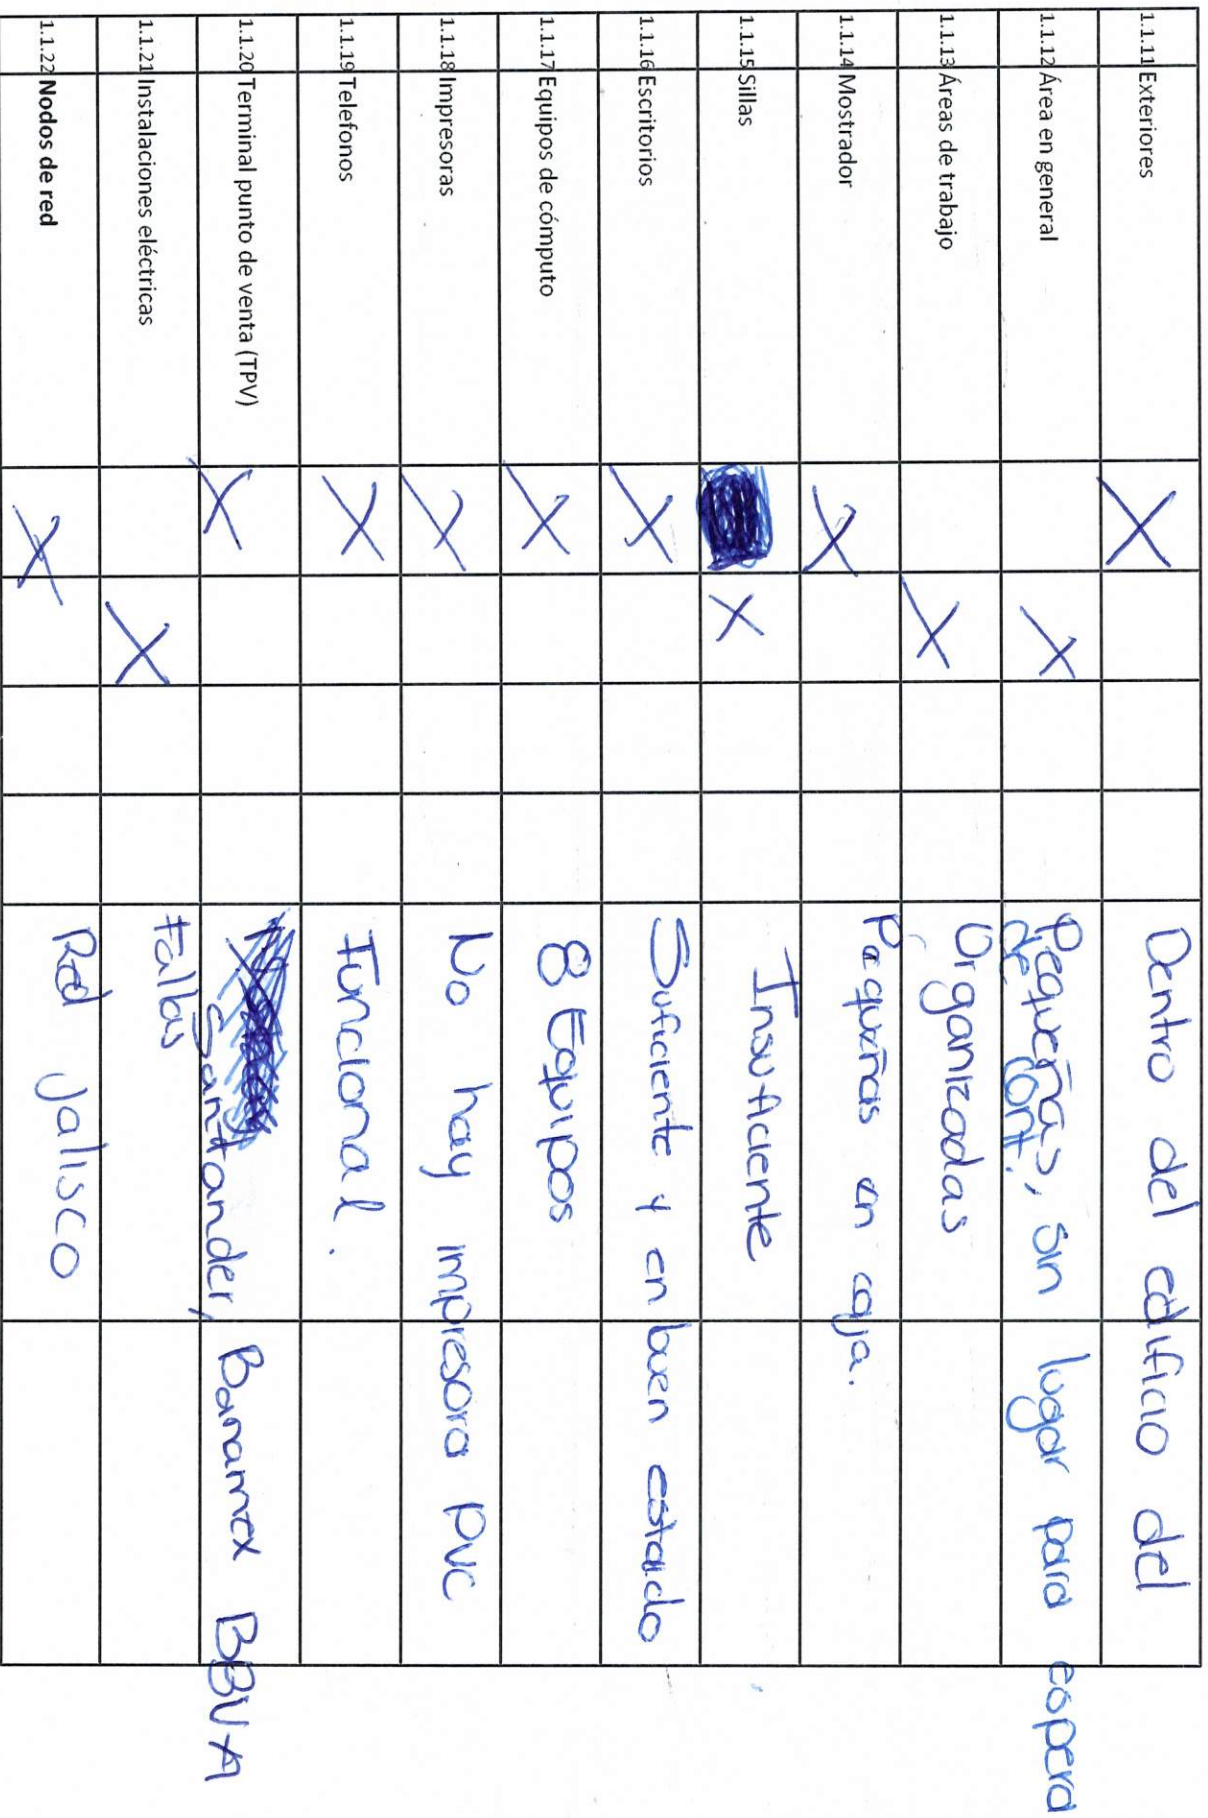 1.1.11 Exteriores X Dentro del edificio del
1.1.12 Área en general X Pequeñas, sin lugar para espera
de cont.
1.1.13 Áreas de trabajo X Organizadas
1.1.14 Mostrador X Pequeñas en caja.
1.1.15 Sillas X Insuficiente
1.1.16 Escritorios X Suficiente y en buen estado
1.1.17 Equipos de cómputo X 8 Equipos
1.1.18 Impresoras X No hay impresora PVC
1.1.19 Telefonos X Funcional.
1.1.20 Terminal punto de venta (TPV) X Santander, Banamex BBVA
1.1.21 Instalaciones eléctricas X Fallas
1.1.22 Nodos de red X Red Jalisco